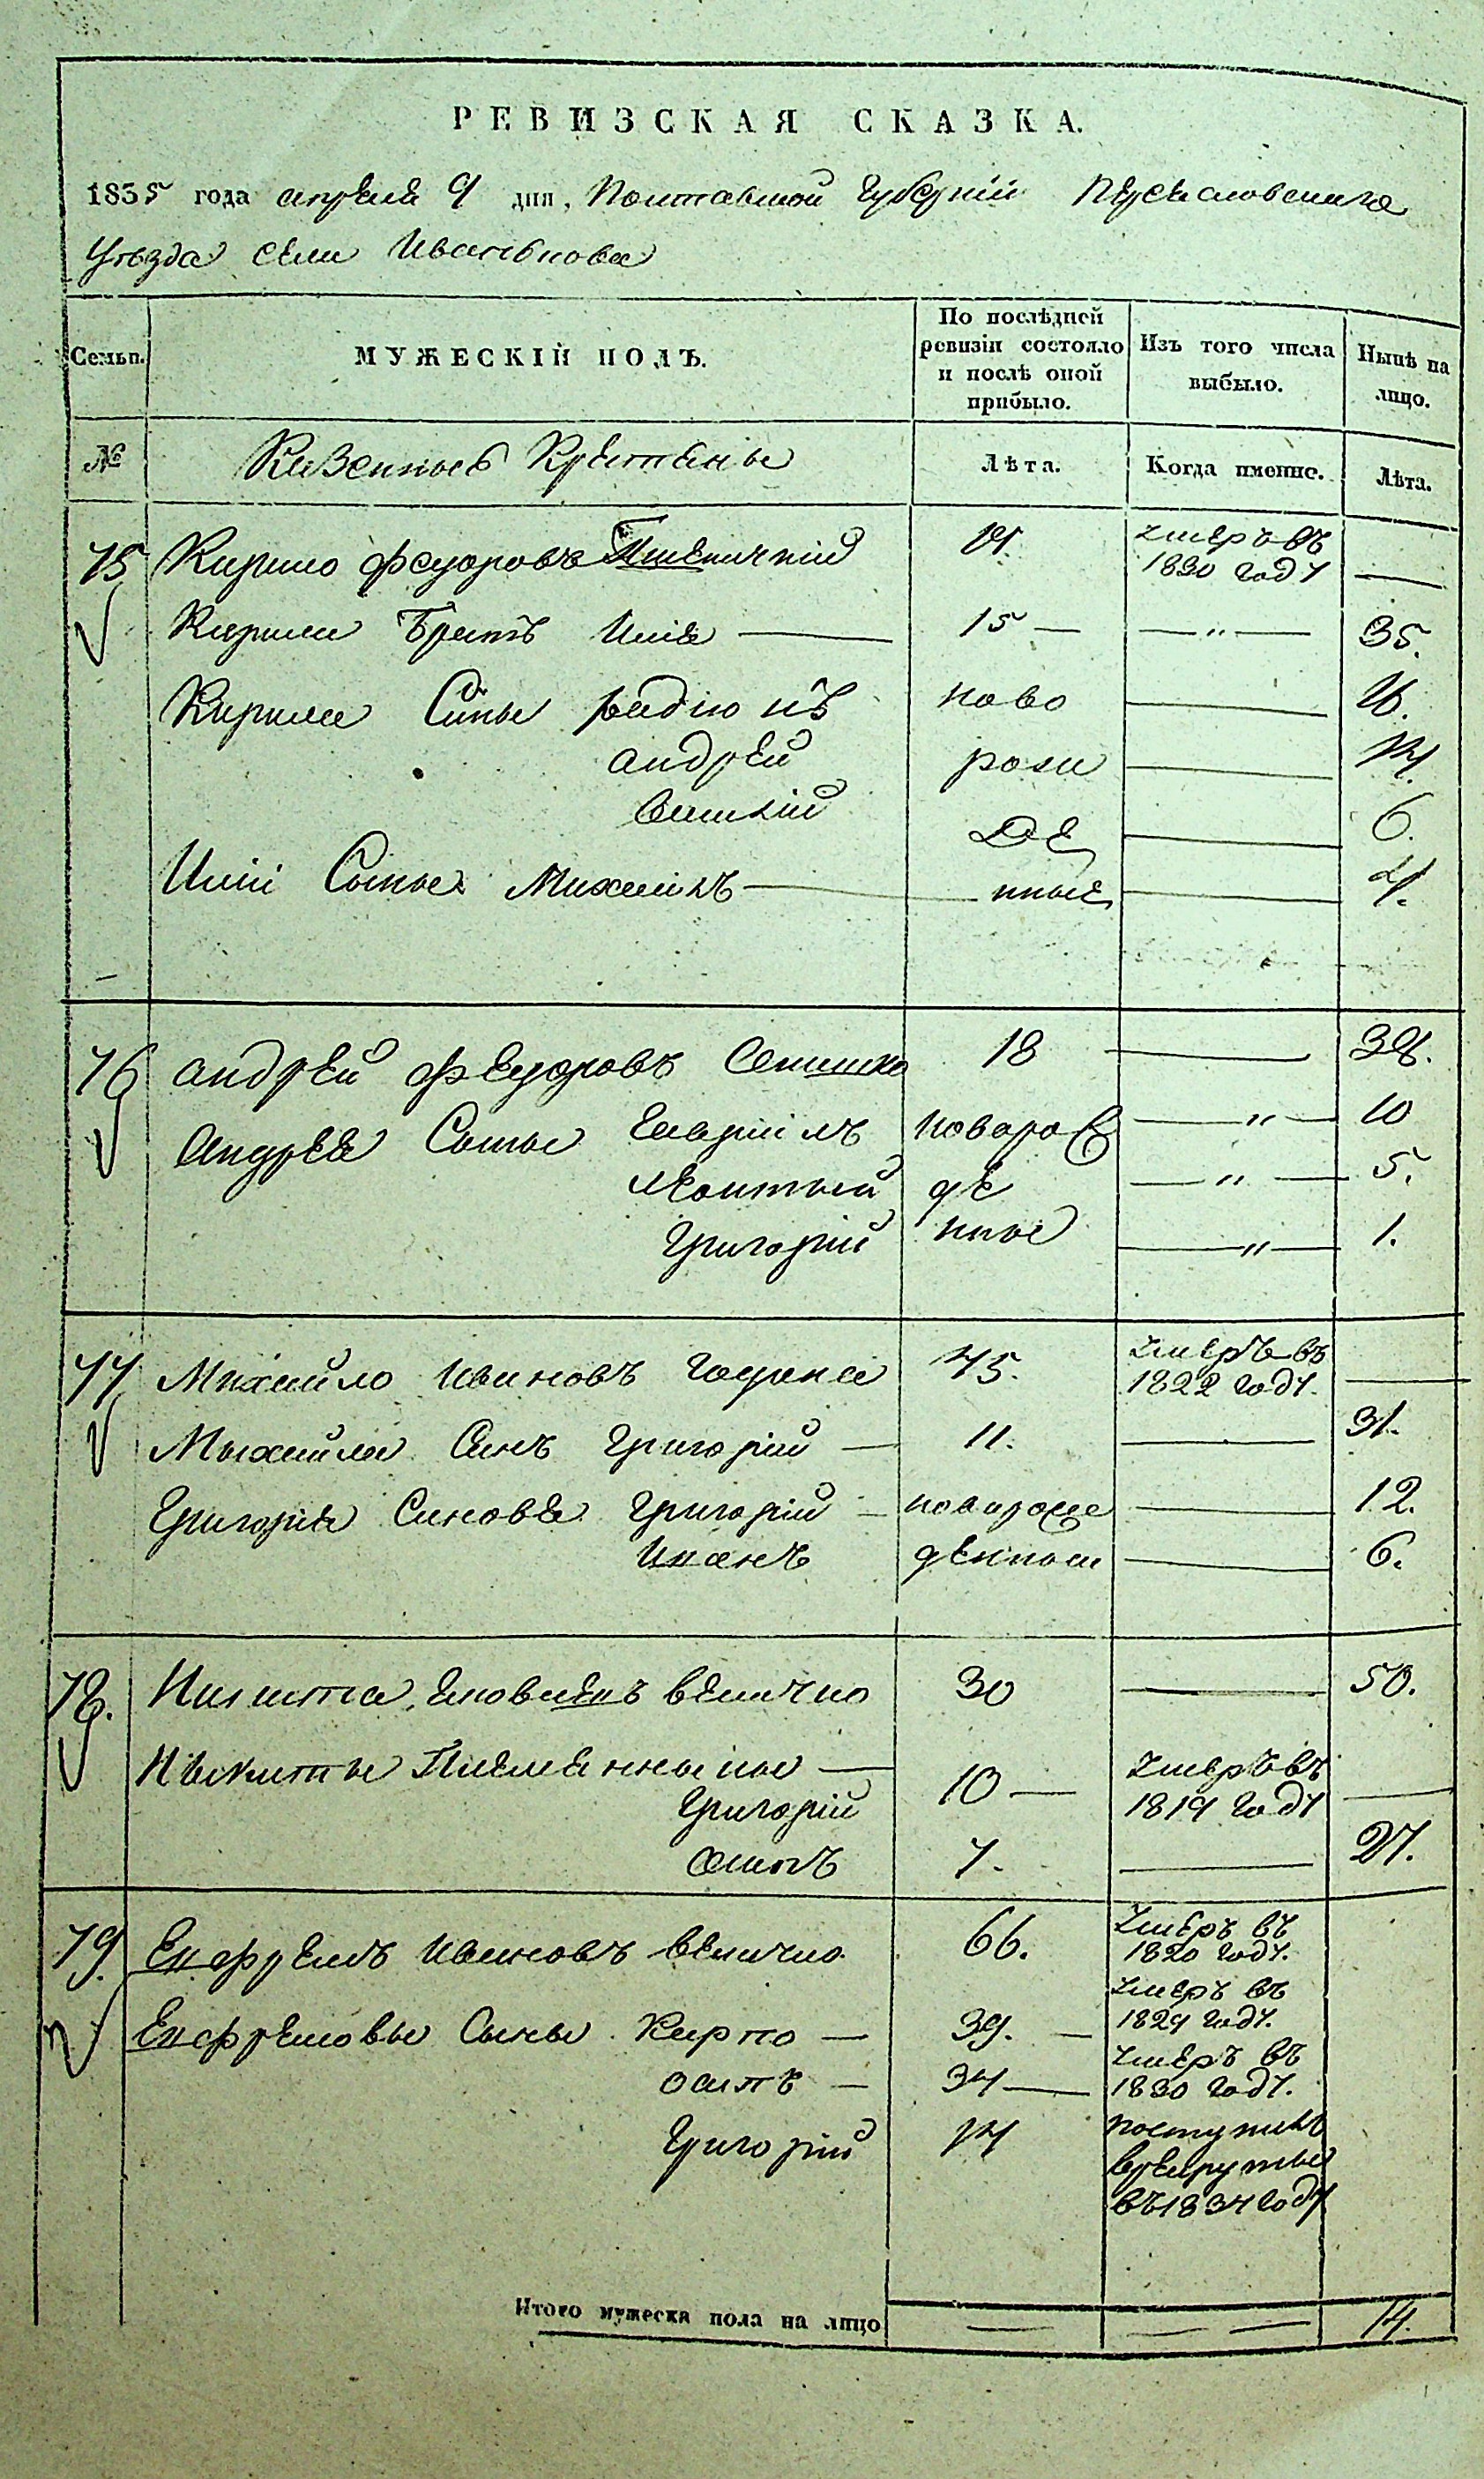 РЕВИЗСКАЯ СКАЗКА.
1835 года апреля 9 дня, Полтавской Губернии Переясловскаго
Уезда села Иванькова
Семьи. МУЖЕСКІЙ ПОЛЪ. По послѣдней ревизіи состояло и послѣ оной прибыло. Изъ того числа выбыло. Нынѣ на лицо.
№ Казенные Крестяне Лѣта. Когда именно. Лѣта.
75 Кирило Федоровъ Пшеничній умеръ въ 1830 году —
Кирила Братъ Илия — 15 — — „ — 35.
Кирила Сины ново — 16.
андрей рож — 14.
Василій де — 6.
Илии Сыны Михаилъ — нные — 4.
76 андрей Федоровъ 18 — 38.
Андрея Сыны Гаврiилъ новорож — „ — 10
Леонтый де — „ — 5.
Григорій нные — „ — 1.
77 Михайло Ивановъ 45. умеръ въ 1822 году. —
Мыхайла Синъ Григорій — 11. — 31.
Григория Синовя Григорій — новорож — 12.
Иванъ денные — 6.
78. Никита величко 30 — 50.
Никиты Племянныки —
Григорій 10 — умеръ въ 1819 году —
Осипъ 7. — 27.
79. Ефремъ Ивановъ величко 66. умеръ въ 1820 году.
Ефремовы Сыны Карпо — 39. — умеръ въ 1829 году.
осипъ — 34 — умеръ въ 1830 году.
Григорій 14 поступилъ в рекруты въ 1834 году
Итого мужеска пола на лицо — — — 14.